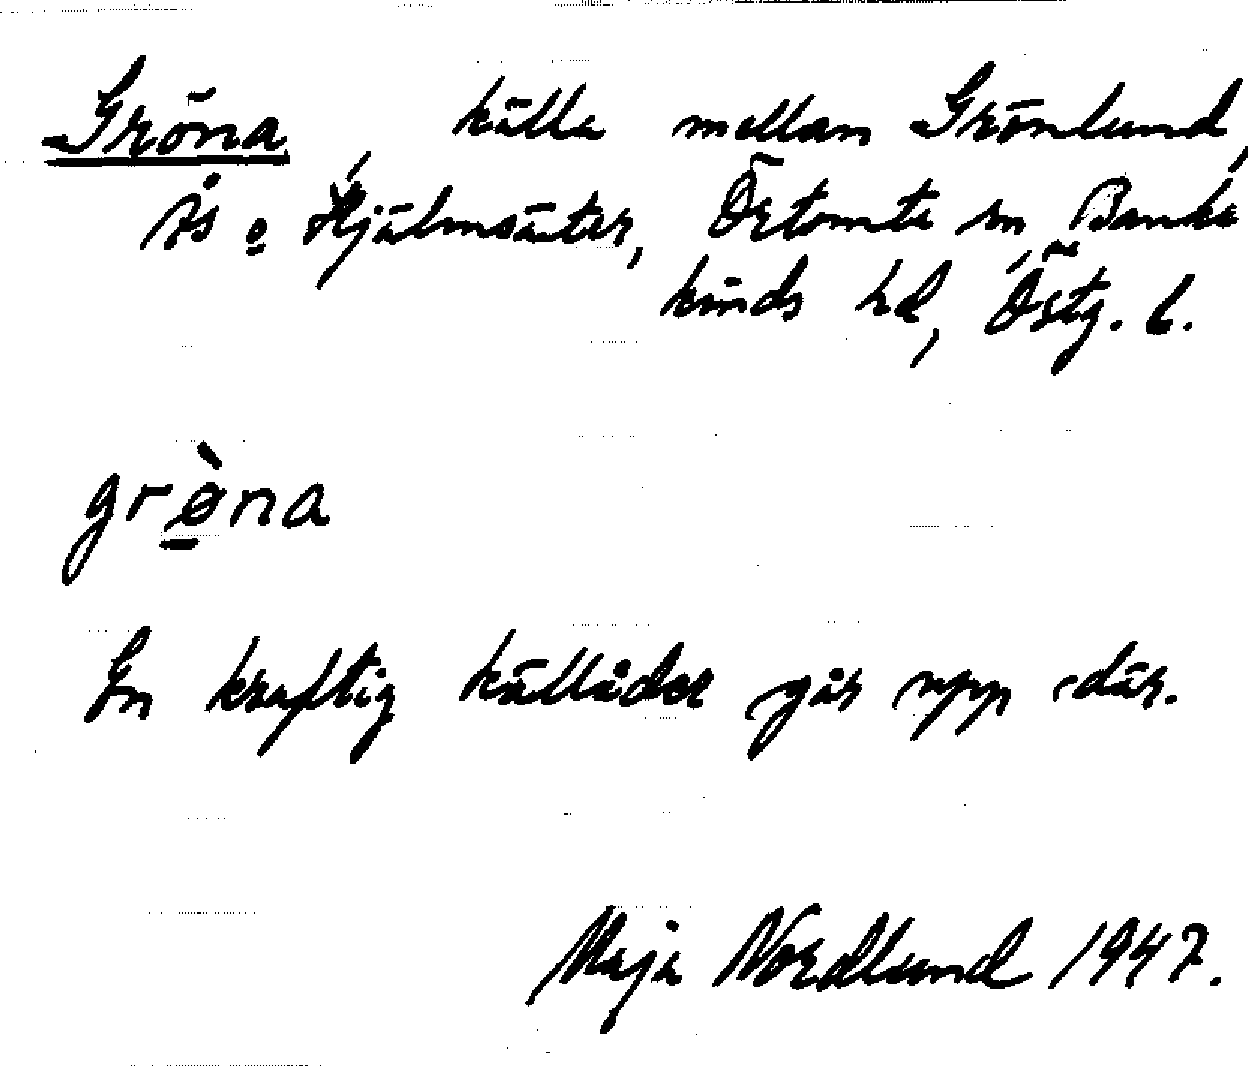 Gröna, källa mellan Grönlund,
Ås o Hjälmsäter, Örtomta sn, Banke
kinds hd, Östg. l.
grø̀na
En kraftig källåder går upp där.
Maja Nordlund 1947.